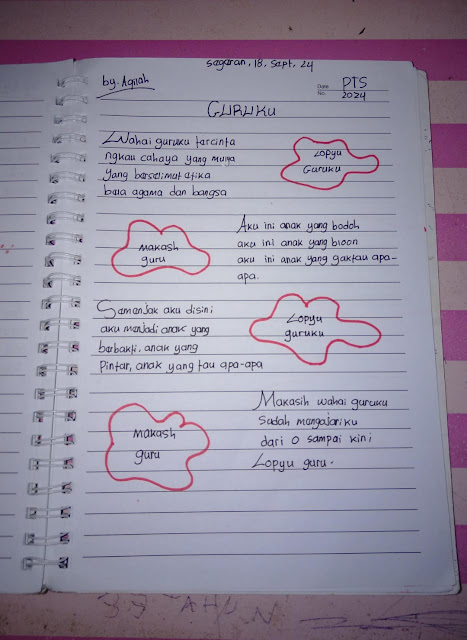 Segaran, 18, Sept, 24
by. Aqilah
Date PTS
No. 2024
GURUKU
Wahai guruku tarcinta
ngkau cahaya yang mulya
yang berselimut atika
bata agama dan bangsa
Lopyu
Guruku
makash
guru
Aku ini anak yang bodoh
aku ini anak yang bloon
aku ini anak yang gaktau apa-
apa.
Samanjak aku disini
aku menjadi anak yang
berbakti, anak yang
Pintar, anak yang tau apa-apa
Lopyu
guruku
makash
guru
Makasih wahai guruku
Sudah mangajariku
dari 0 sampai kini
Lopyu guru.